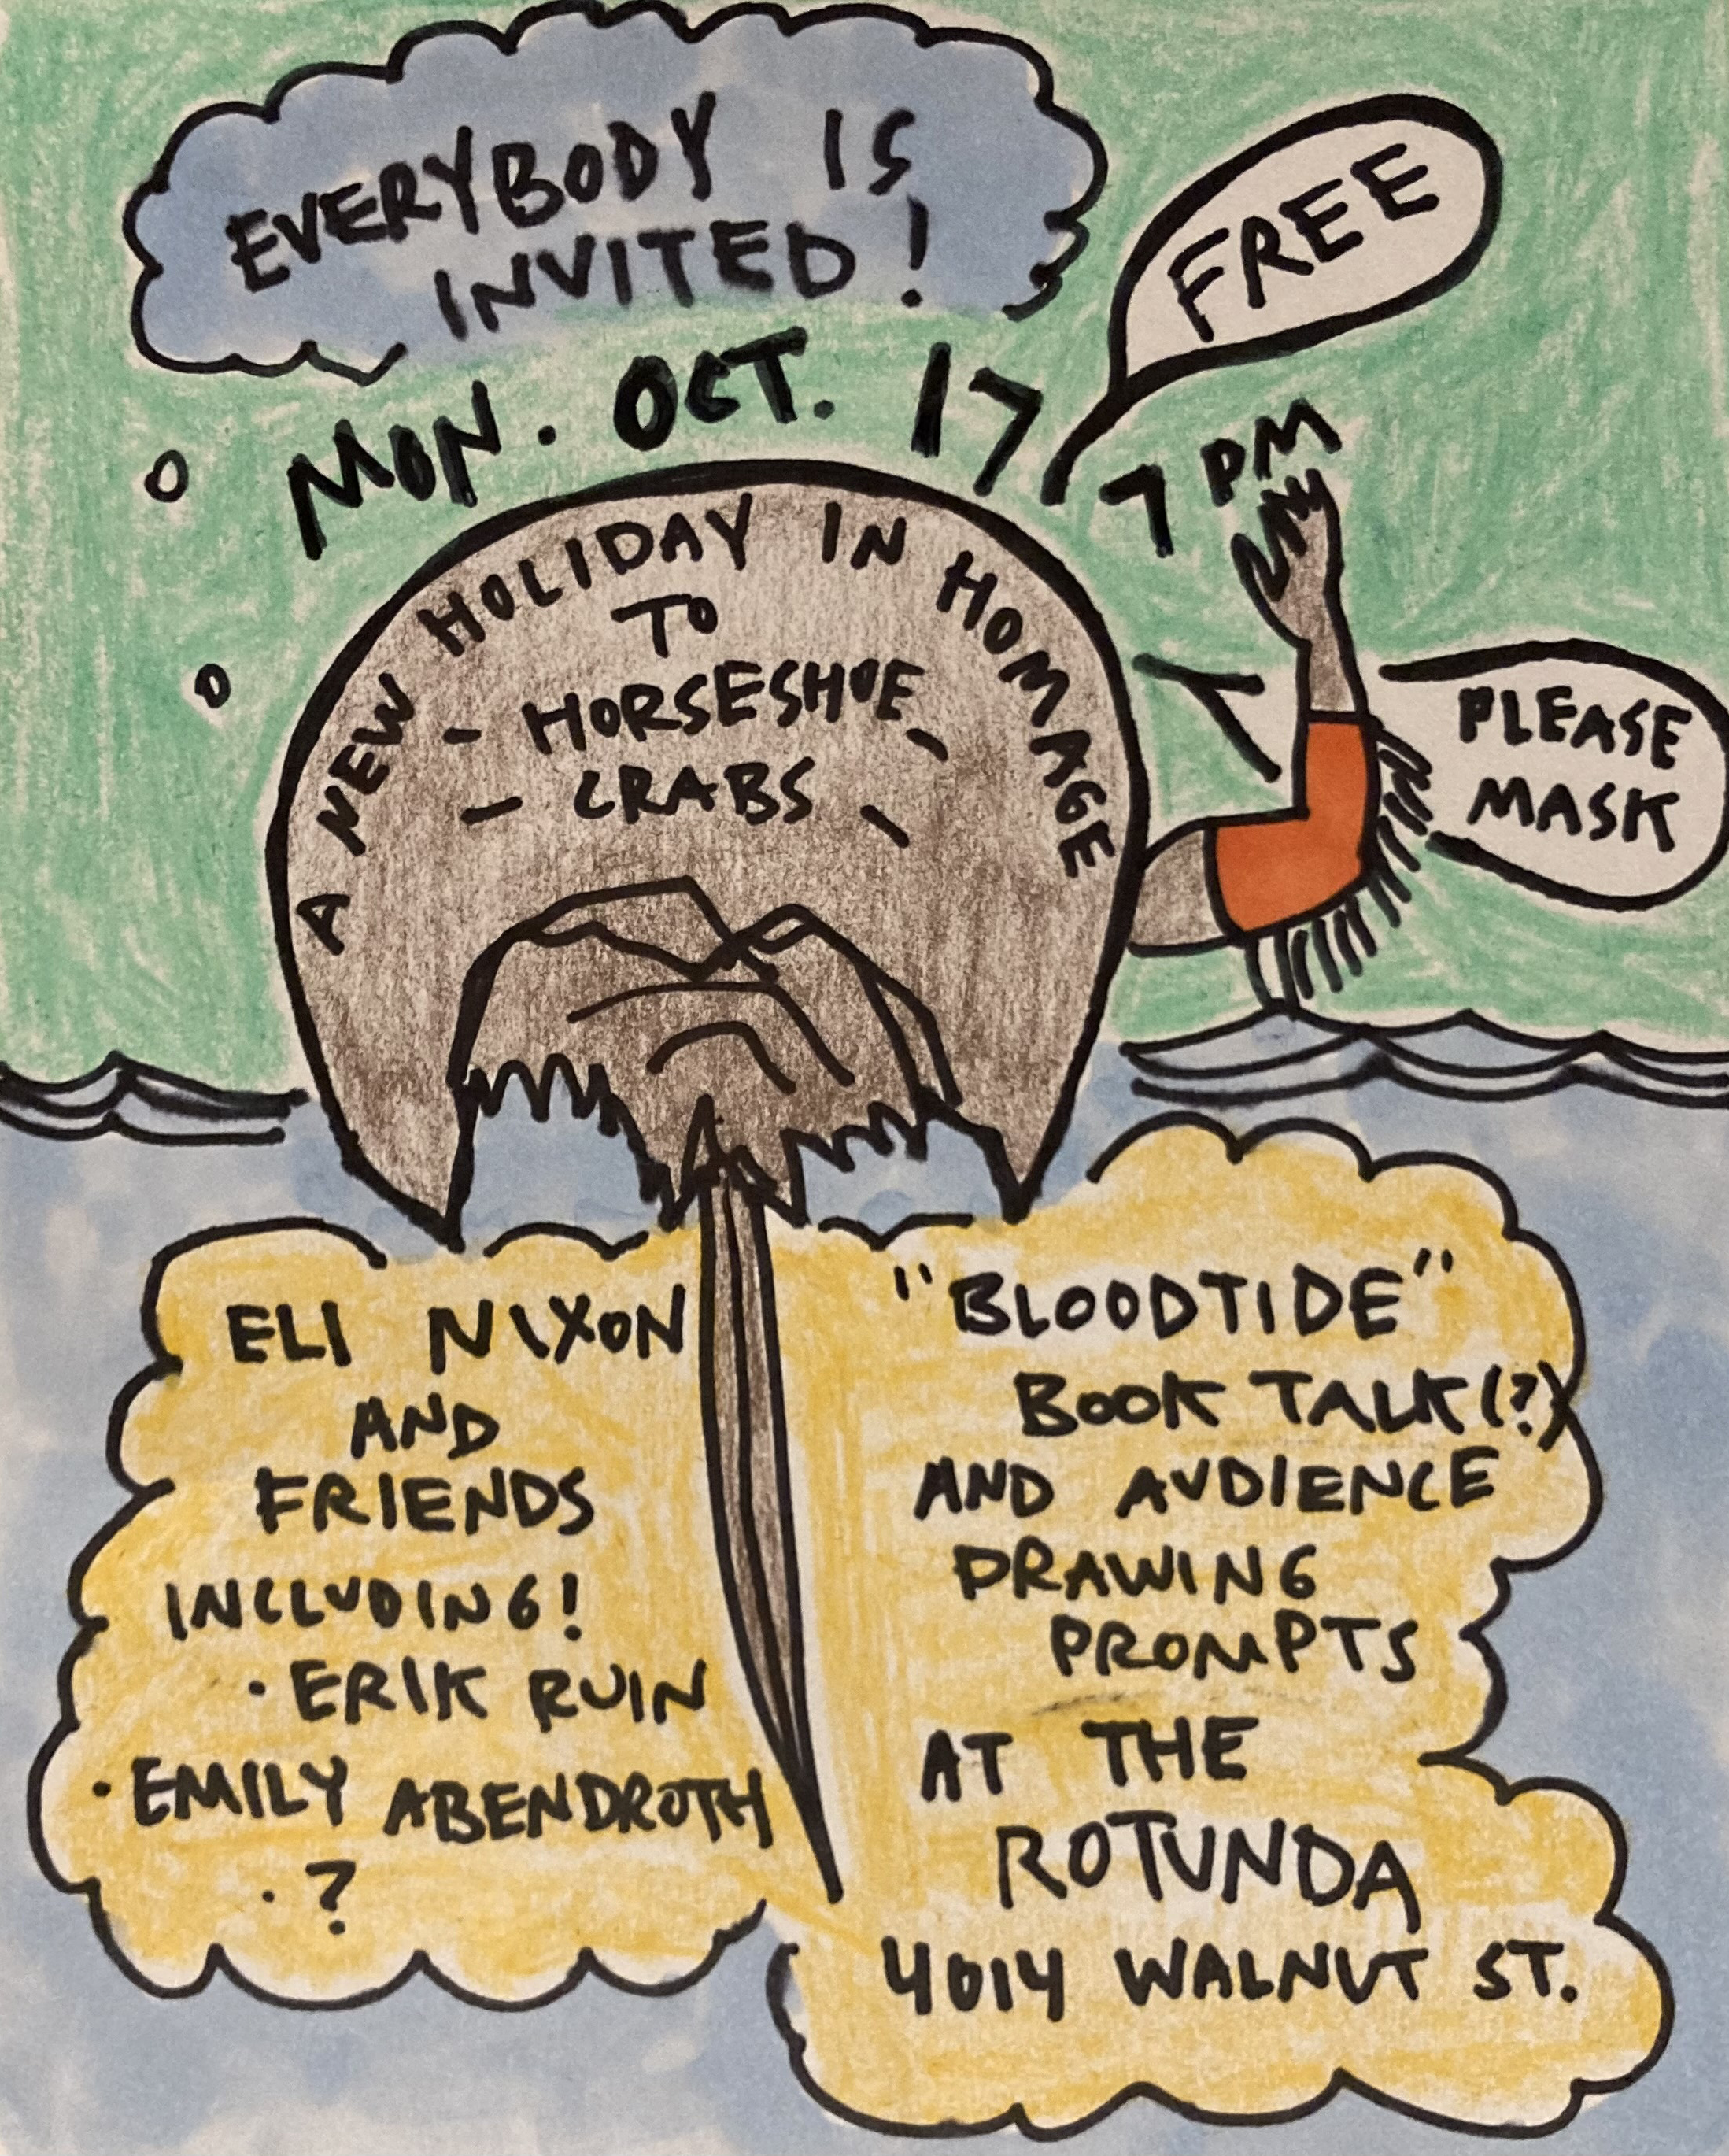 EVERYBODY IS
INVITED!
FREE
MON. OCT. 17
7 PM
A NEW HOLIDAY IN HOMAGE
TO
- HORSESHOE -
- CRABS -
PLEASE
MASK
ELI NIXON
AND
FRIENDS
INCLUDING!
· ERIK RUIN
· EMILY ABENDROTH
· ?
"BLOODTIDE"
BOOK TALK(?)
AND AUDIENCE
DRAWING
PROMPTS
AT THE
ROTUNDA
4014 WALNUT ST.